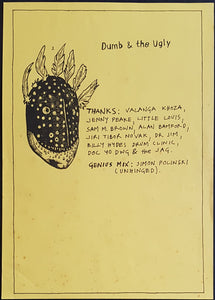 Dumb & the Ugly
THANKS: VALANGA KHOZA,
JENNY PEAKE, LITTLE LOUIS,
SAM M. BROWN, ALAN BAMFORD,
JIRI TIBOR NOVAK, DR JIM,
BILLY HYDES DRUM CLINIC,
DOC YO DWG & the JAG.
GENIUS MIX: SIMON POLINSKI
(UNHINGED).